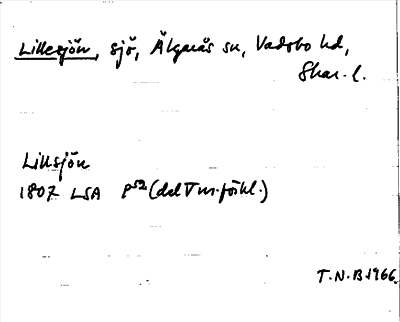 Lillesjön, sjö, Älgarås sn, Vadsbo hd,
Skar. l.
Lillsjön
1807 LSA P52 (del V m. förkl.)
T.N.B. 1966.